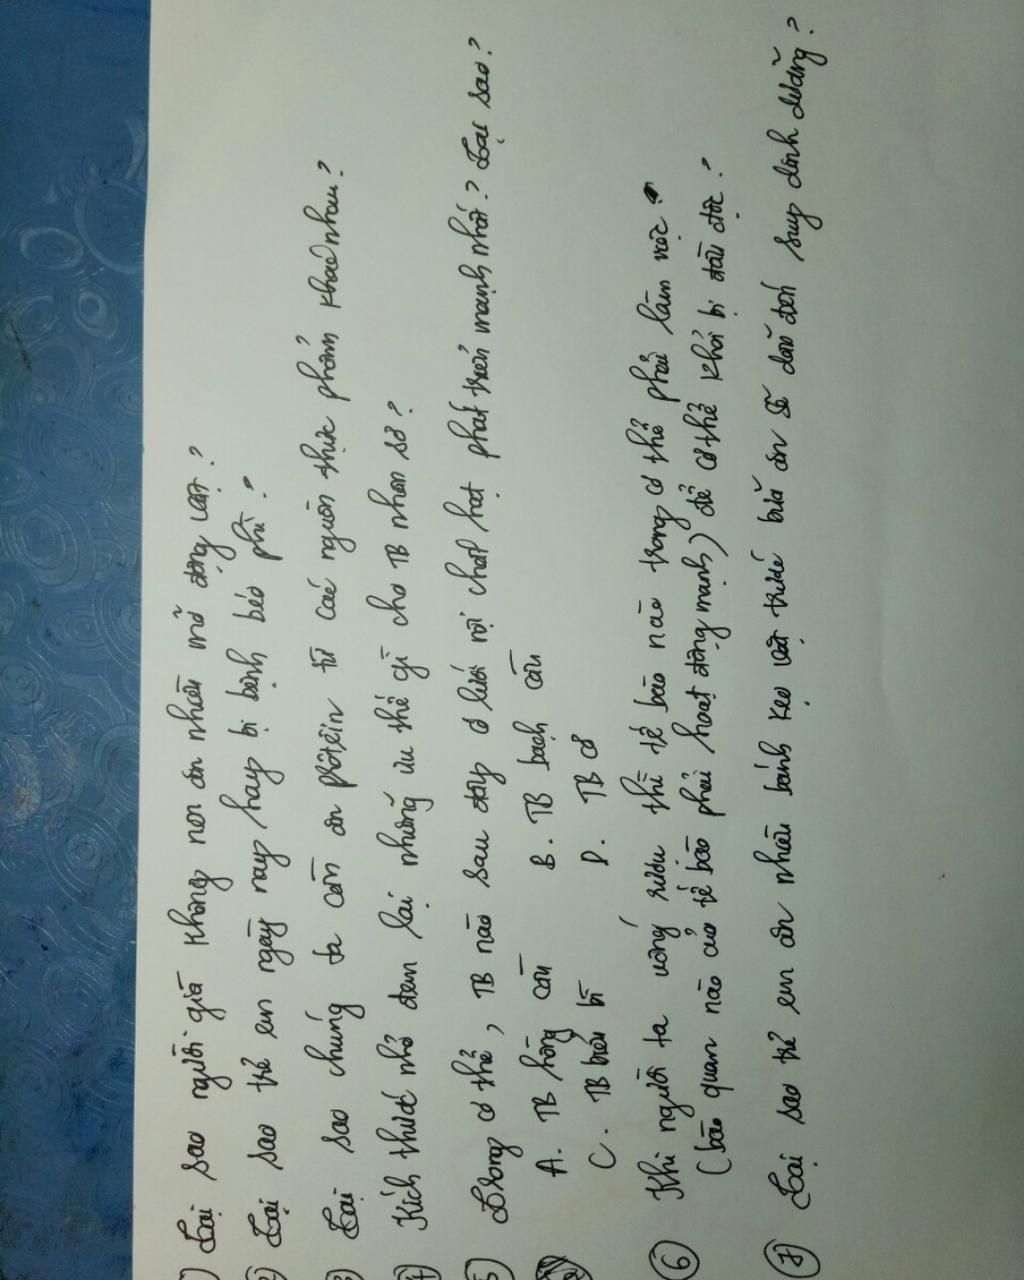 1) Tại sao người già không nên ăn nhiều mỡ động vật?
2) Tại sao trẻ em ngày nay hay bị bệnh béo phì?
3) Tại sao chúng ta cần ăn prôtêin từ các nguồn thực phẩm khác nhau?
4) Kích thước nhỏ đem lại những ưu thế gì cho TB nhân sơ?
5) Trong cơ thể, TB nào sau đây có lưới nội chất hạt phát triển mạnh nhất? Tại sao?
A. TB hồng cầu B. TB bạch cầu
C. TB biểu bì D. TB cơ
6 Khi người ta uống rượu thì tế bào nào trong cơ thể phải làm việc
(bào quan nào của tế bào phải hoạt động mạnh) để cơ thể khỏi bị đầu độc?
7 Tại sao trẻ em ăn nhiều bánh kẹo vặt trước bữa ăn sẽ dẫn đến suy dinh dưỡng?